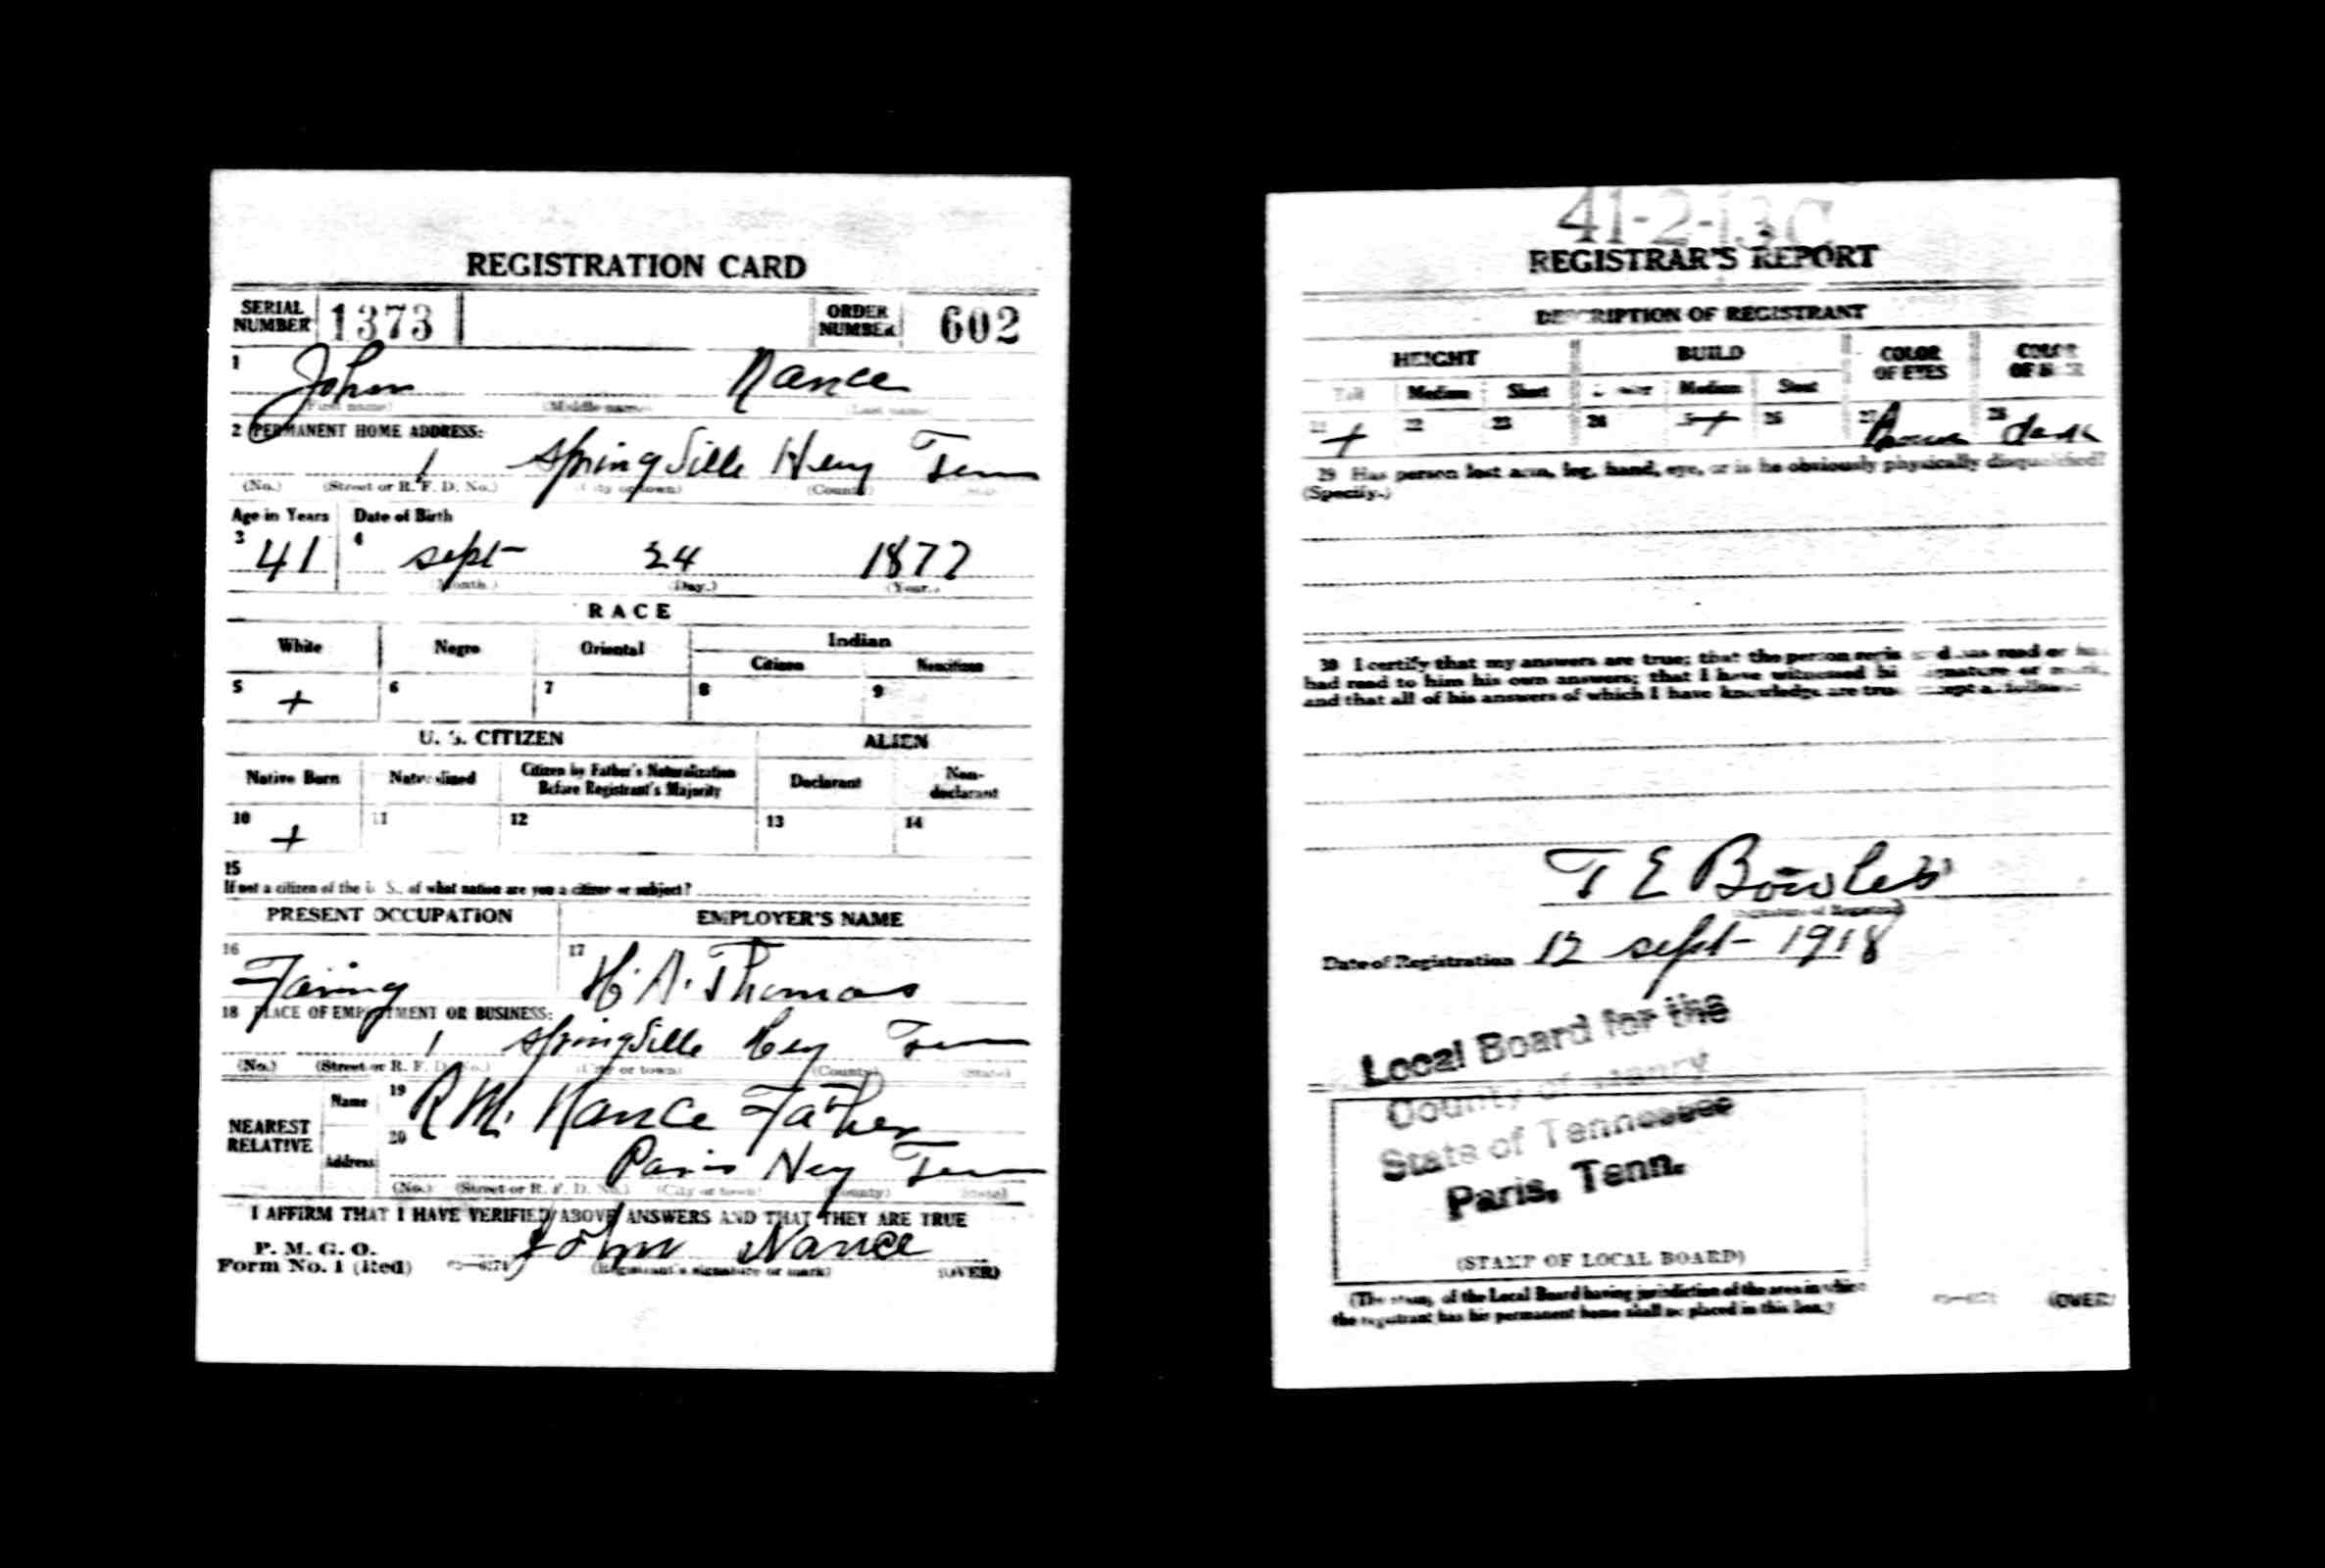 REGISTRATION CARD
SERIAL NUMBER 1373 ORDER NUMBER 602
1 John Nance
(First name) (Middle name) (Last name)
2 PERMANENT HOME ADDRESS:
1 Springville Heny Tenn
(No.) (Street or R. F. D. No.) (City or town) (County)
Age in Years Date of Birth
3 41 4 sept 24 1877
(Month.) (Day.) (Year.)
RACE
White Negro Oriental Indian
Citizen Noncitizen
5 + 6 7 8 9
U. S. CITIZEN ALIEN
Native Born Naturalized Citizen by Father's Naturalization Before Registrant's Majority Declarant Non-declarant
10 + 11 12 13 14
15
If not a citizen of the U. S., of what nation are you a citizen or subject?
PRESENT OCCUPATION EMPLOYER'S NAME
16 Faring 17 H. A. Thomas
18 PLACE OF EMPLOYMENT OR BUSINESS:
1 Springville Heny Tenn
(No.) (Street or R. F. D. No.) (City or town) (County) (State)
NEAREST RELATIVE
Name 19 R M. Nance Father
Address 20 Paris Heny Tenn
(No.) (Street or R. F. D. No.) (City or town) (County) (State)
I AFFIRM THAT I HAVE VERIFIED ABOVE ANSWERS AND THAT THEY ARE TRUE
P. M. G. O.
Form No. 1 (Red) John Nance
(Registrant's signature or mark) (OVER)
41-2-13 C
REGISTRAR'S REPORT
DESCRIPTION OF REGISTRANT
HEIGHT BUILD COLOR OF EYES COLOR OF HAIR
Tall Medium Short Slender Medium Stout
21 + 22 23 24 25 + 26 27 Brown 28 dark
29 Has person lost arm, leg, hand, eye, or is he obviously physically disqualified?
(Specify.)
30 I certify that my answers are true; that the person registered has read or has
had read to him his own answers; that I have witnessed his signature or mark,
and that all of his answers of which I have knowledge are true, except as follows:
T E Bowles
(Signature of Registrar)
Date of Registration 12 sept- 1918
Local Board for the
County of Henry
State of Tennessee
Paris, Tenn.
(STAMP OF LOCAL BOARD)
(The stamp of the Local Board having jurisdiction of the area in which
the registrant has his permanent home shall be placed in this box.)
(OVER)